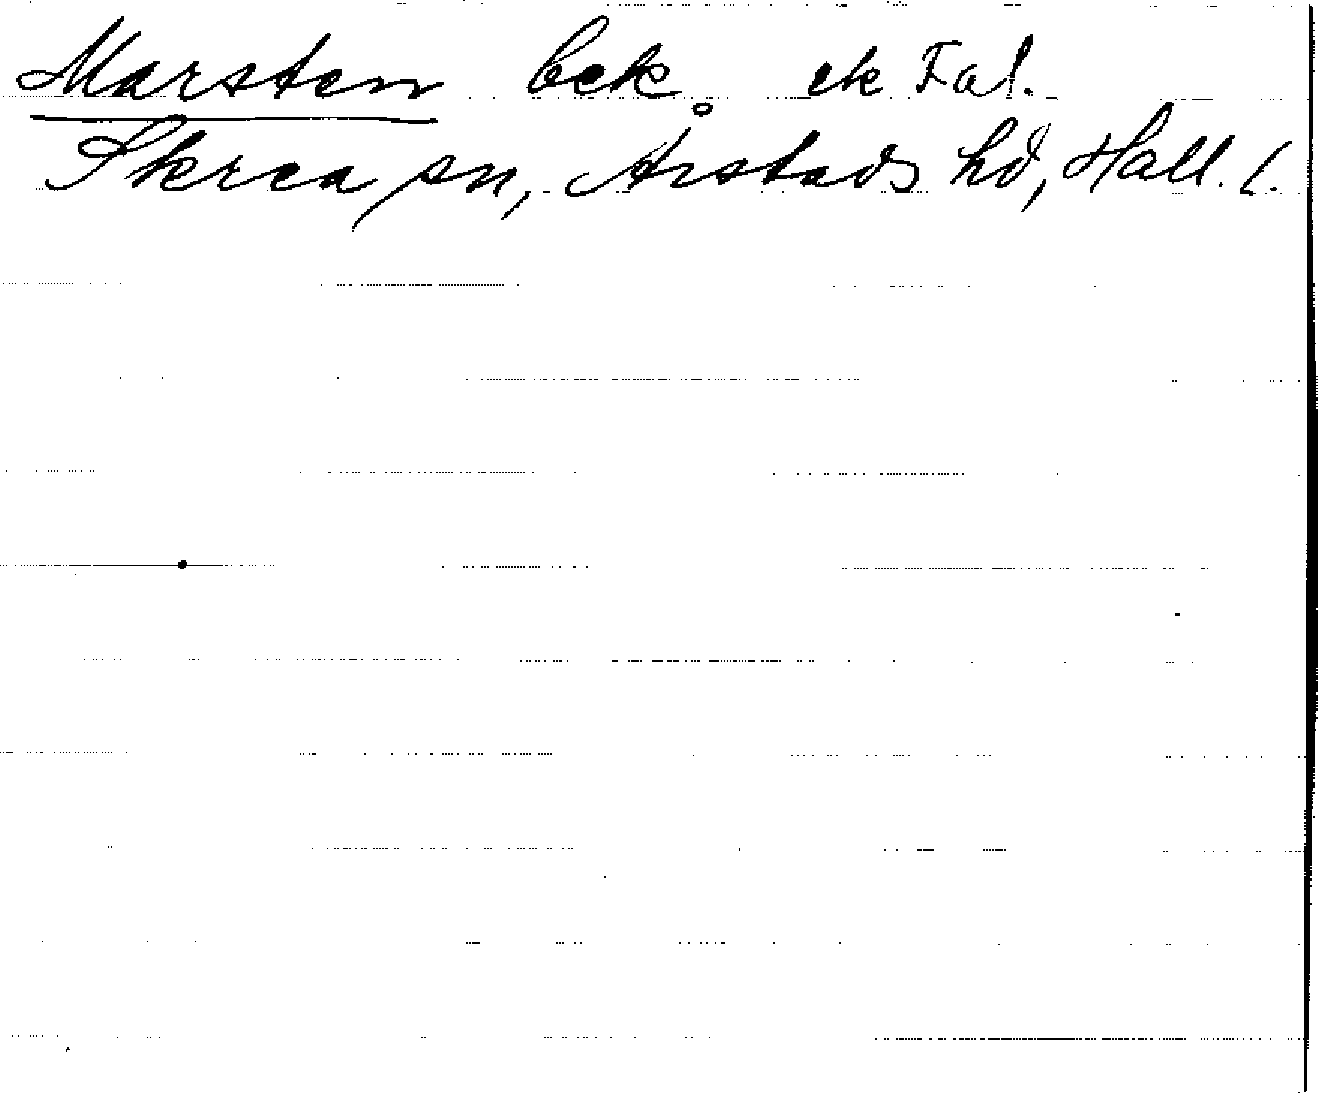 Marsten bek. ek Fal.
Skrea sn, Årstads hd, Hall. l.